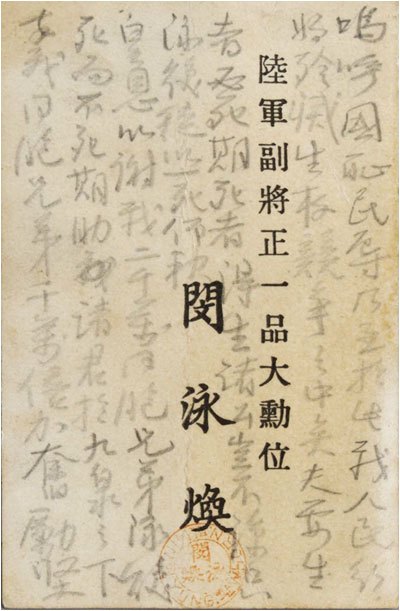 陸軍副將正一品大勳位
閔泳煥
嗚呼國恥民辱乃至於此我人民行
將殄滅生存競爭之中矣夫要生
者必死期死者得生諸公豈不諒只
泳煥徒以一死仰報
皇恩以謝我二千萬同胞兄弟泳煥
死而不死期助諸君於九泉之下
幸我同胞兄弟千萬倍加奮勵堅